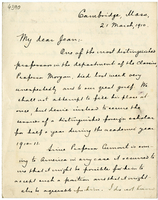 Cambridge, Mass,
2 March, 1910.
My dear Joan:
One of the most distinguished
professors in the department of the Classics
Professor Morgan, died last week very
unexpectedly and to our great grief. We
shall not attempt to fill his place at
once, but desire instead to secure the
services of a distinguished foreign scholar
for half a year during the academic year
1910-11.
Since Professor Cumont is coming
to America in any case it occurred to
us that it might be possible for him to
accept such a position and that it might
also be agreeable for him. I do not know